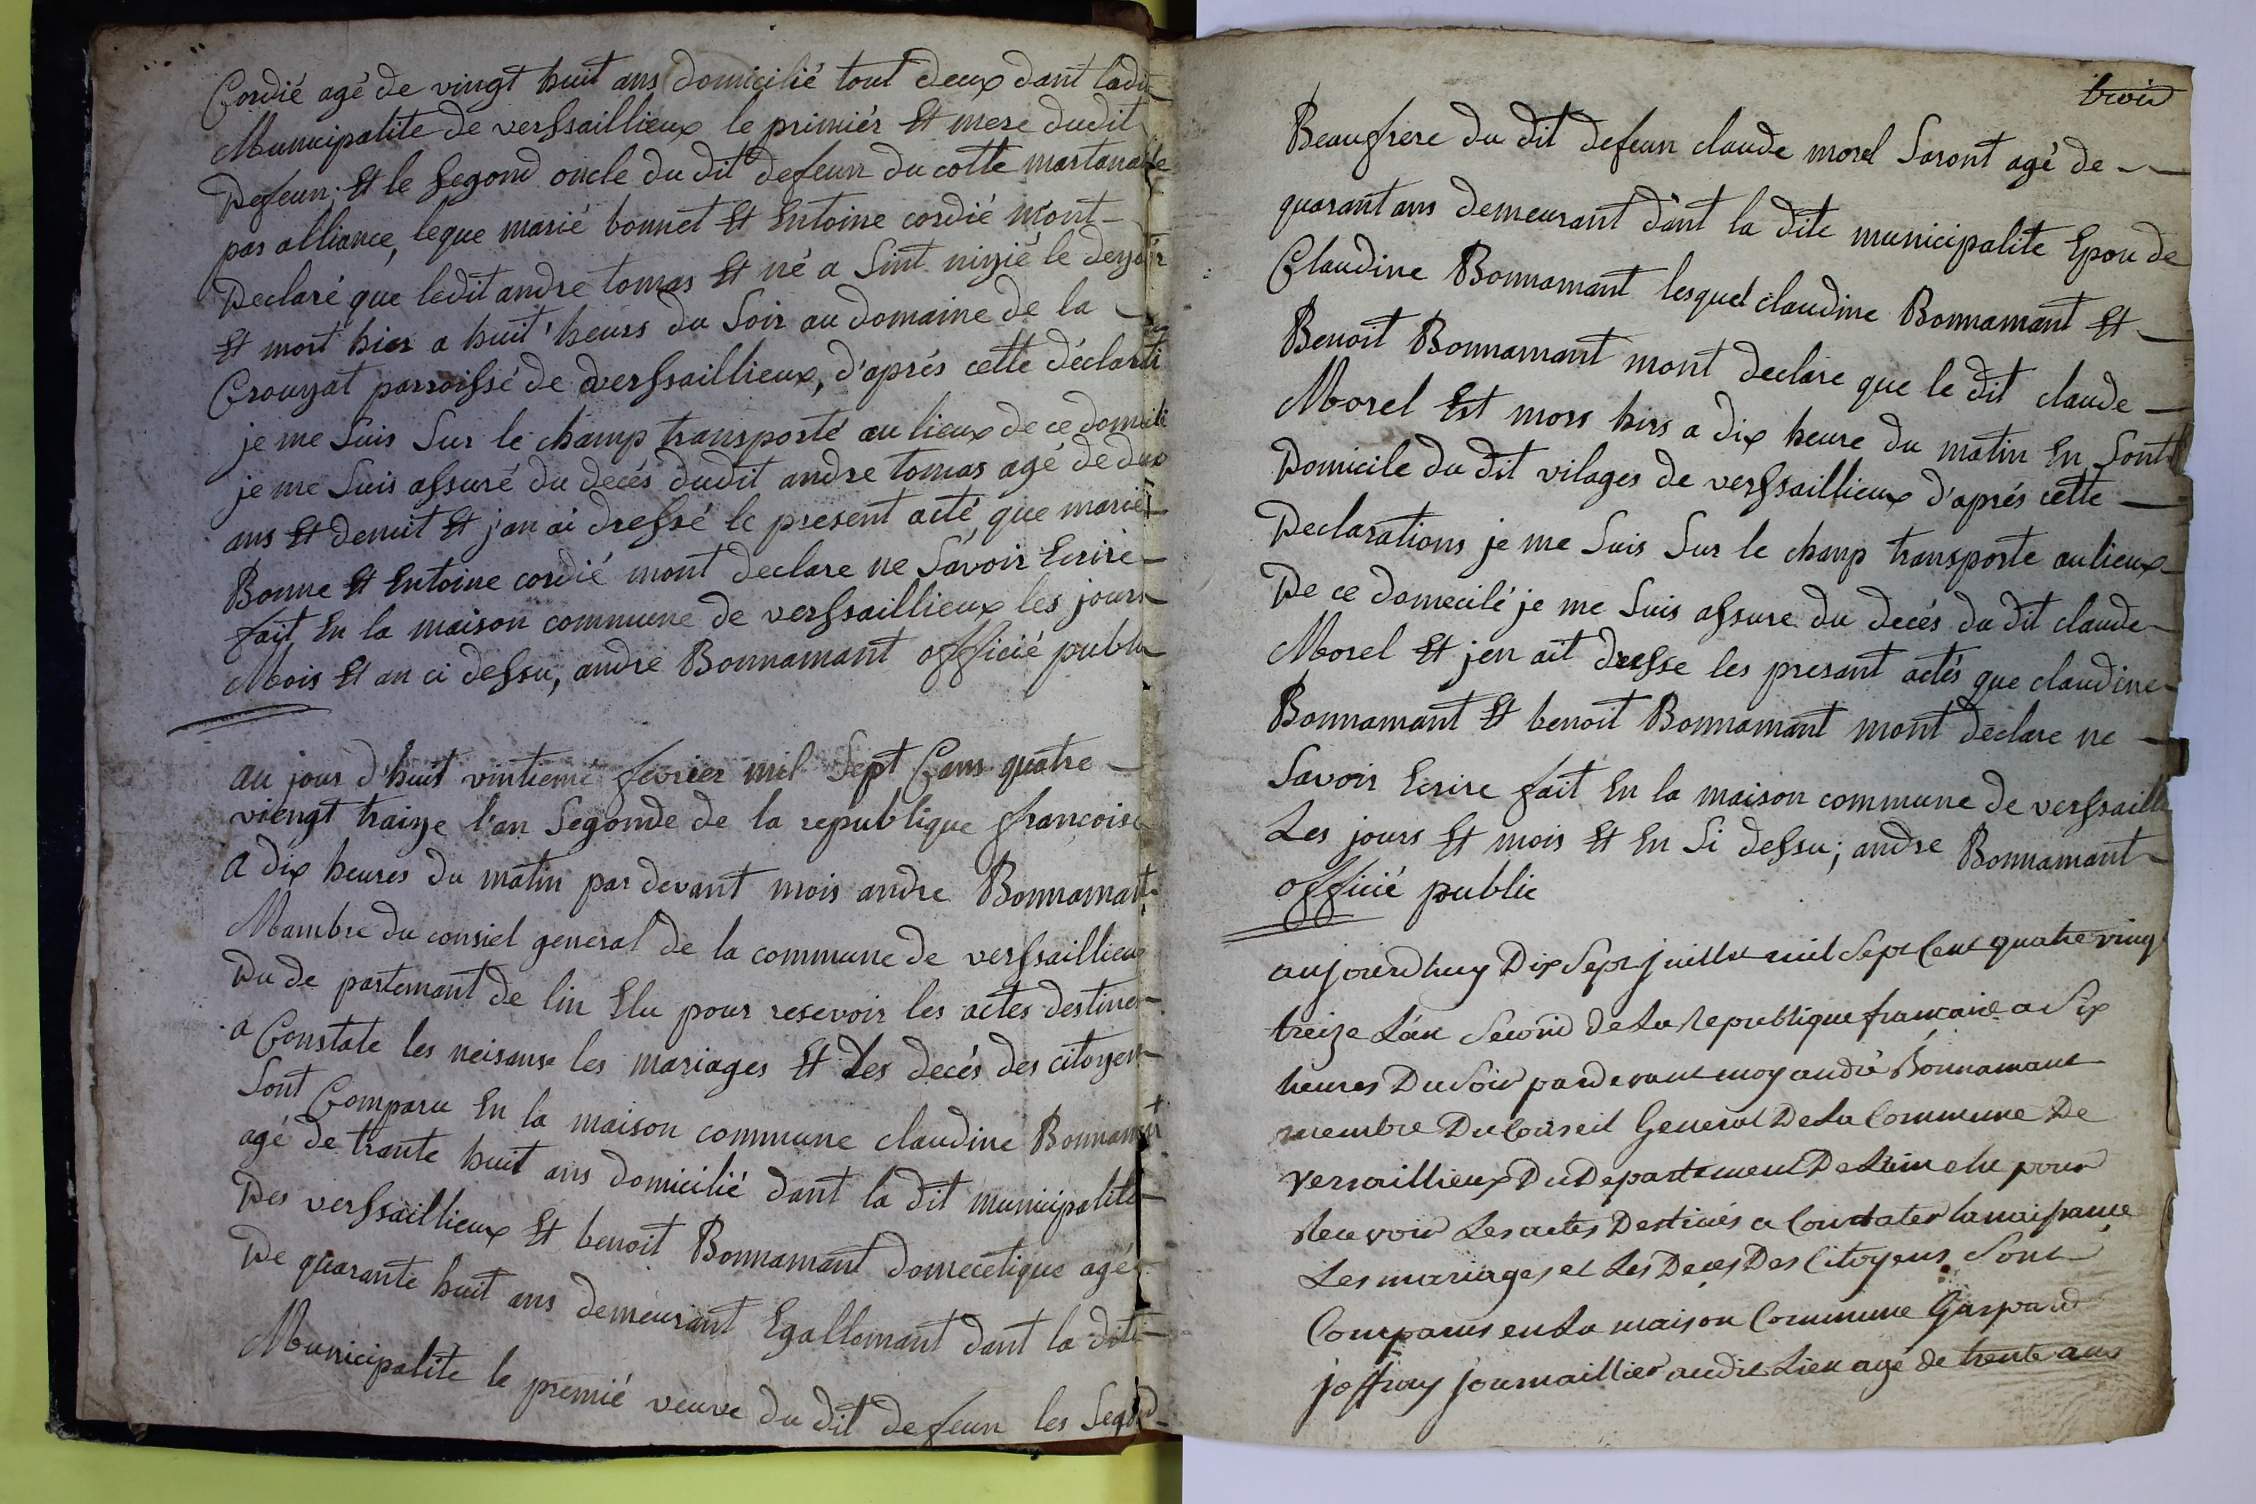 Cordié agé de vingt huit ans domicilié tout deux dant ladit
Municipalite de verssaillieux le primiér Et mere dudit
Defeun; Et le segond oncle du dit defeun du cotte martanalle
par alliance, leque marié bonnet Et Entoine cordié m'ont
Declaré que ledit andre tomas Et né a Sint niziè le
Et mort hier a huit heurs du Soir au domaine de la
Crouzat parroissé de verssaillieux, d'aprés cette déclarati
je me Suis Sur le champ transporté au lieux de ce domicili
je me Suis assuré du decés dudit andre tomas agé de dux
ans Et demit Et j'an ai dressé le present acté que marie
Bonne Et Entoine cordié mont declare ne Savoir Ecrire
fait En la maison commune de verssaillieux les jours
Mois Et an ci dessu; andre Bonnamant officié public
au jour d'huit vintiemé fevrier mil Sept Cans quatre
viengt traize l'an Segonde de la republique françoise
A dix heures du matin par devant mois andre Bonnamant
Mambre du consiel general de la commune de verssaillieux
Du de partemant de lin Elu pour resevoir les actes destines
a Constate les neisanse les mariages Et Les decés des citoyen
Sont Comparu En la maison commune claudine Bonnamant
agé de trante huit ans domicilié dant la dit municipalite
Des verssaillieux Et benoit Bonnamant domecetique agé
De quarante huit ans demeurant Egallemant dant la dite
Municipalite le premié veuve du dit defeun les Segond
trois
Beaufrere du dit defeun claude morel Saront agé de
quarant ans demeurant dant la dite municipalite Epou de
Claudine Bonnamant lesquel claudine Bonnamant Et
Benoit Bonnamant mont declare que le dit claude
Morel Est mors hirs a dix heure du matin En Sont
Domicile du dit vilages de verssaillieux d'aprés cette
Declarations je me Suis Sur le champ transporte au lieux
De ce domecilé je me Suis assure du decés du dit claude
Morel Et jen ait dresse les presant actés que claudine
Bonnamant Et benoit Bonnamant mont declare ne
Savoir Ecrire fait En la maison commune de verssaille
Les jours Et mois Et En Si dessu; andre Bonnamant
officié public
aujourdhuy Dix Sept juillet mil Sept Cent quatre vingt
treize L'an Second de La Republique francaise a Six
heures Du Soir pardevant moy andré Bonnamant
membre Du Conseil General De La Commune De
versaillieux Du Departement De Lain elu pour
Recevoir Les actes Destinés a Constater la naissance
Les mariages et Les Decès Des Citoyens Sont
Comparus en La maison Commune Gaspard
joffray journaillier audit Lieu agé de trente ans